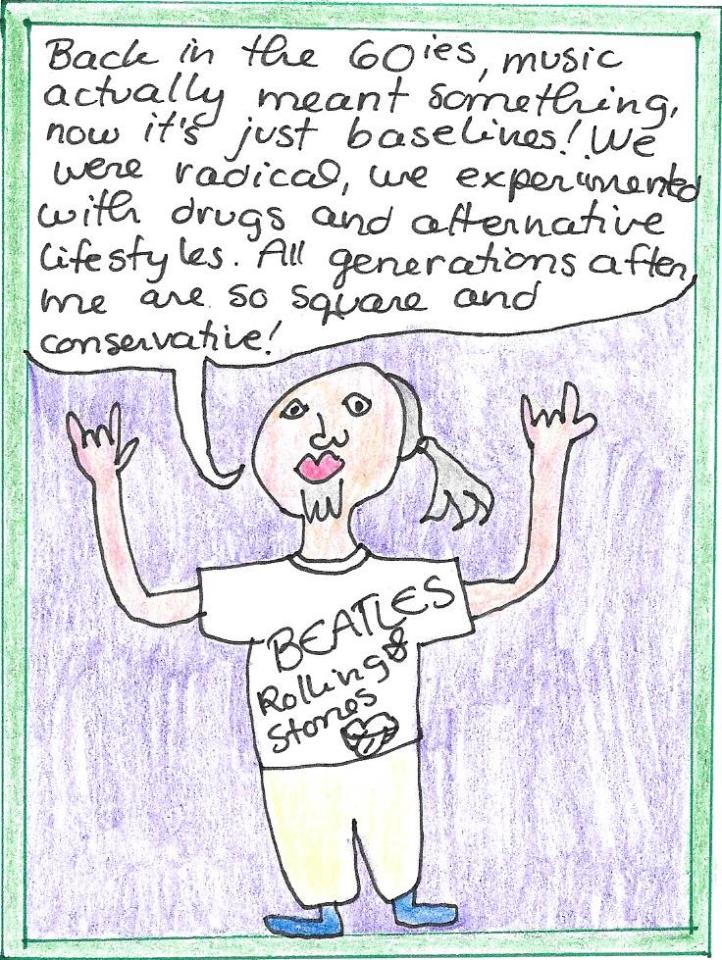 Back in the 60ies, music
actually meant something,
now it's just baselines! We
were radical, we experimented
with drugs and alternative
lifestyles. All generations after
me are so square and
conservative!
BEATLES
&
Rolling
Stones